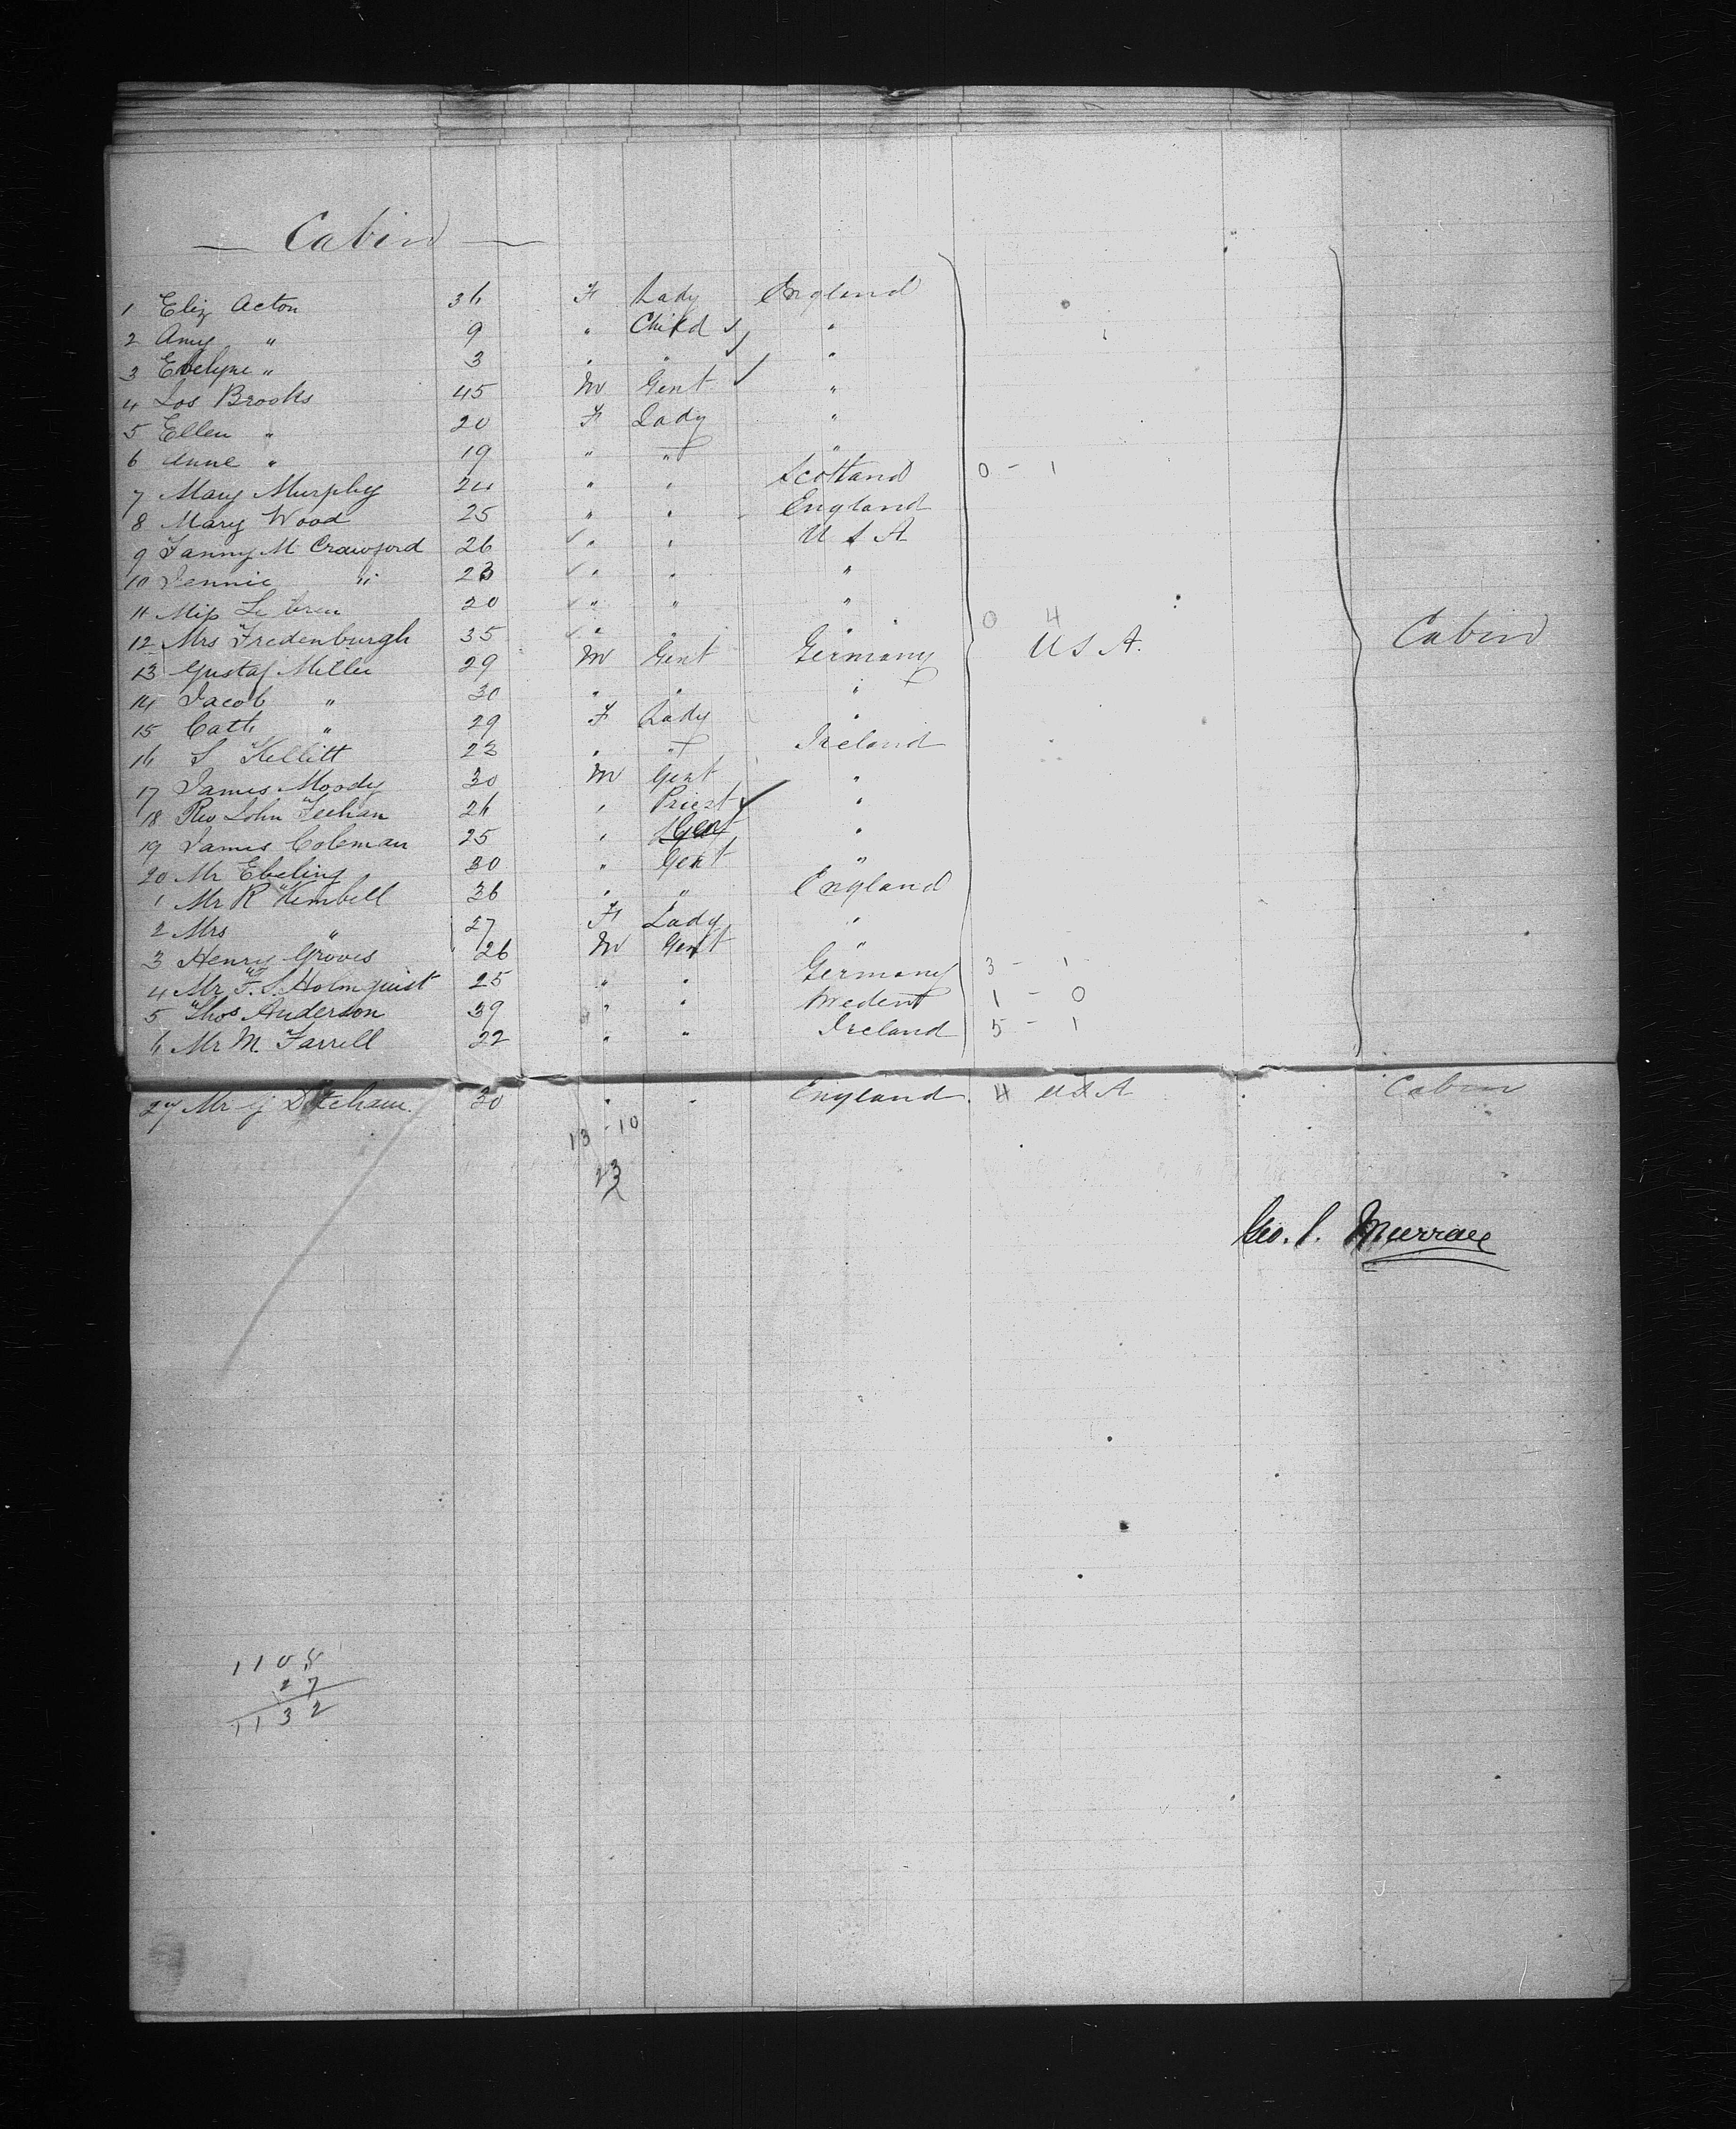 — Cabin —
1 Eliz Acton 36 F Lady England
2 Amy " 9 " Child "
3 Evelyne " 3 " " "
4 Jos Brooks 45 M Gent "
5 Ellen " 20 F Lady "
6 Anne " 19 " " "
7 Mary Murphy 24 " " Scotland 0 - 1
8 Mary Wood 25 " " England
9 Fanny M Crawford 26 " " U S A
10 Jennie " 23 " " "
11 Miss 20 " " "
12 Mrs Fredenburgh 35 " " " 0 4
13 Gustaf Miller 29 M Gent Germany U S A. Cabin
14 Jacob " 30 " " "
15 Cath " 29 F Lady "
16 S Kellitt 22 " " Ireland
17 James Moody 30 M Gent "
18 Rev John Feehan 26 " Priest "
19 James Coleman 25 " Gent "
20 Mr Ebeling 30 " Gent "
1 Mr R Kimbell 36 " " England
2 Mrs " 27 F Lady "
3 Henry Groves 26 M Gent "
4 Mr F. S. Holmquist 25 " " Germany 3 - 1
5 Thos Anderson 39 " " 1 - 0
6 Mr M Farrell 22 " " Ireland 5 - 1
27 Mr J 30 " " England 4 U S A Cabin
13 - 10
23
Geo. S. Murray
1105
27
1132